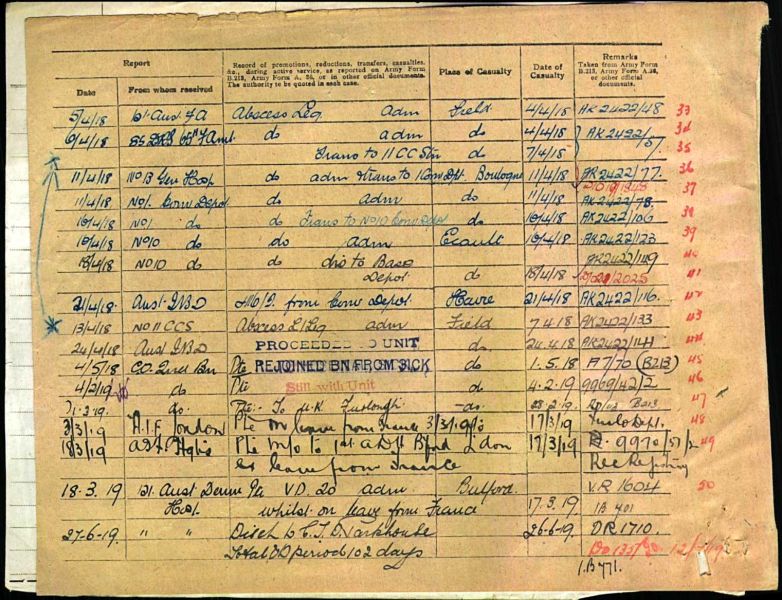 Report
Record of promotions, reductions, transfers, casualties,
&c., during active service, as reported on Army Form
B.213, Army Form A. 36, or in other official documents.
The authority to be quoted in each case.
Place of Casualty
Date of
Casualty
Remarks
Taken from Army Form
B.213, Army Form A.36,
or other official
documents.
Date
From whom received
5/4/18 1st Aust F A Abscess Leg adm Field 4/4/18 AK2422/48 33
6/4/18 F Amb do adm do 4/4/18 AK2422/57 34
Trans to 11 CC Stn do 7/4/18 35
11/4/18 No 13 Gen Hosp do adm trans to 1 Con Dpt. Boulogne 11/4/18 AK2422/77 36
11/4/18 No 1. Conv Depot do adm do 11/4/18 AK2422/78 37
16/4/18 No 1 do do Trans to No 10 Conv Dep do 16/4/18 AK2422/106 38
16/4/18 No 10 do do adm Ecault 16/4/18 AK2422/123 39
18/4/18 No 10 do do dis to Base
Depot do 18/4/18 AK2422/119 40
2025 41
21/4/18 Aust I.B.D from Conv Depot Havre 21/4/18 AK2422/116 42
13/4/18 No 11 CCS Abscess L/Leg adm Field 7.4.18 AK2422/133 43
24/4/18 Aust I.B.D PROCEEDED TO UNIT do 24.4.18 AK2422/141 44
4/5/18 C.O. 2nd Bn Pte REJOINED BN FROM SICK do 1.5.18 A7/70 (B213) 45
Still with Unit
4/2/19 do Pte do 4.2.19 9969/42/2 46
.2.19 do Pte - To U.K. Furlough do .2.19 B213 47
3/3/19 A.I.F. London Pte on leave from France 3/3/19 17/3/19 Furlo Dpt. 48
18/3/19 A.I.F. Hqrs Pte m/o to 1st A D H Bford London 17/3/19 9970/57/2 49
ex leave from France Rec Registry
18.3.19 1st Aust Derm Pte V.D. 20 adm Bulford V.R 1604 50
Hosp whilst on leave from France 17.3.19 IB 401
27-6-19 " " Disch to C.T.D Parkhouse 26-6-19 DR 1710
Total VD period 102 days
I.B 771.